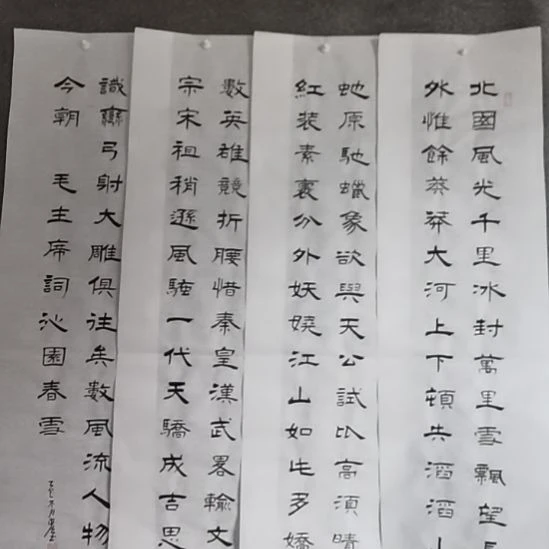 北國風光千里冰封萬里雪飄望長
外惟餘莽莽大河上下頓失滔滔山
虵原馳蠟象欲與天公試比高須晴
紅裝素裹分外妖嬈江山如此多嬌
數英雄競折腰惜秦皇漢武畧輸文
宗宋祖稍遜風騷一代天驕成吉思
識彎弓射大雕俱往矣數風流人物
今朝 毛主席詞沁園春雪